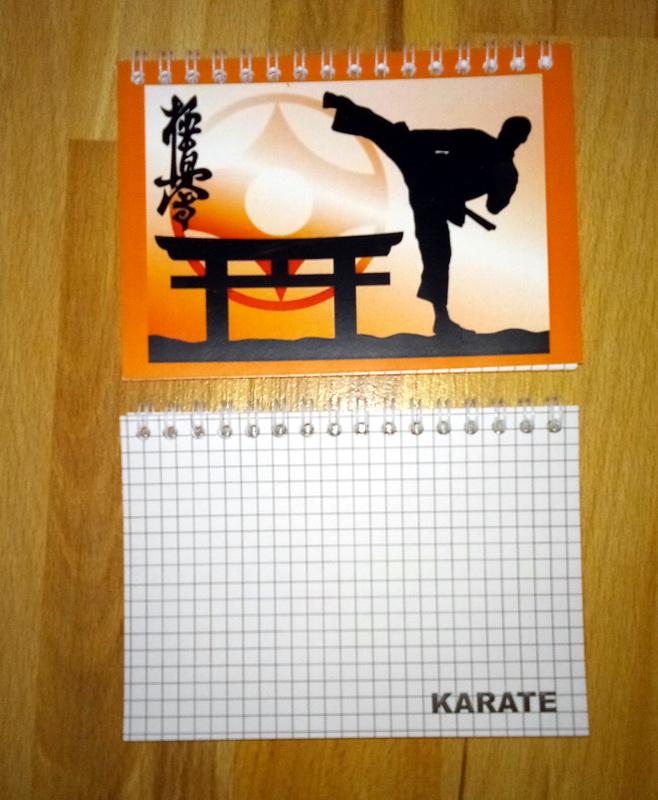 極真会
KARATE